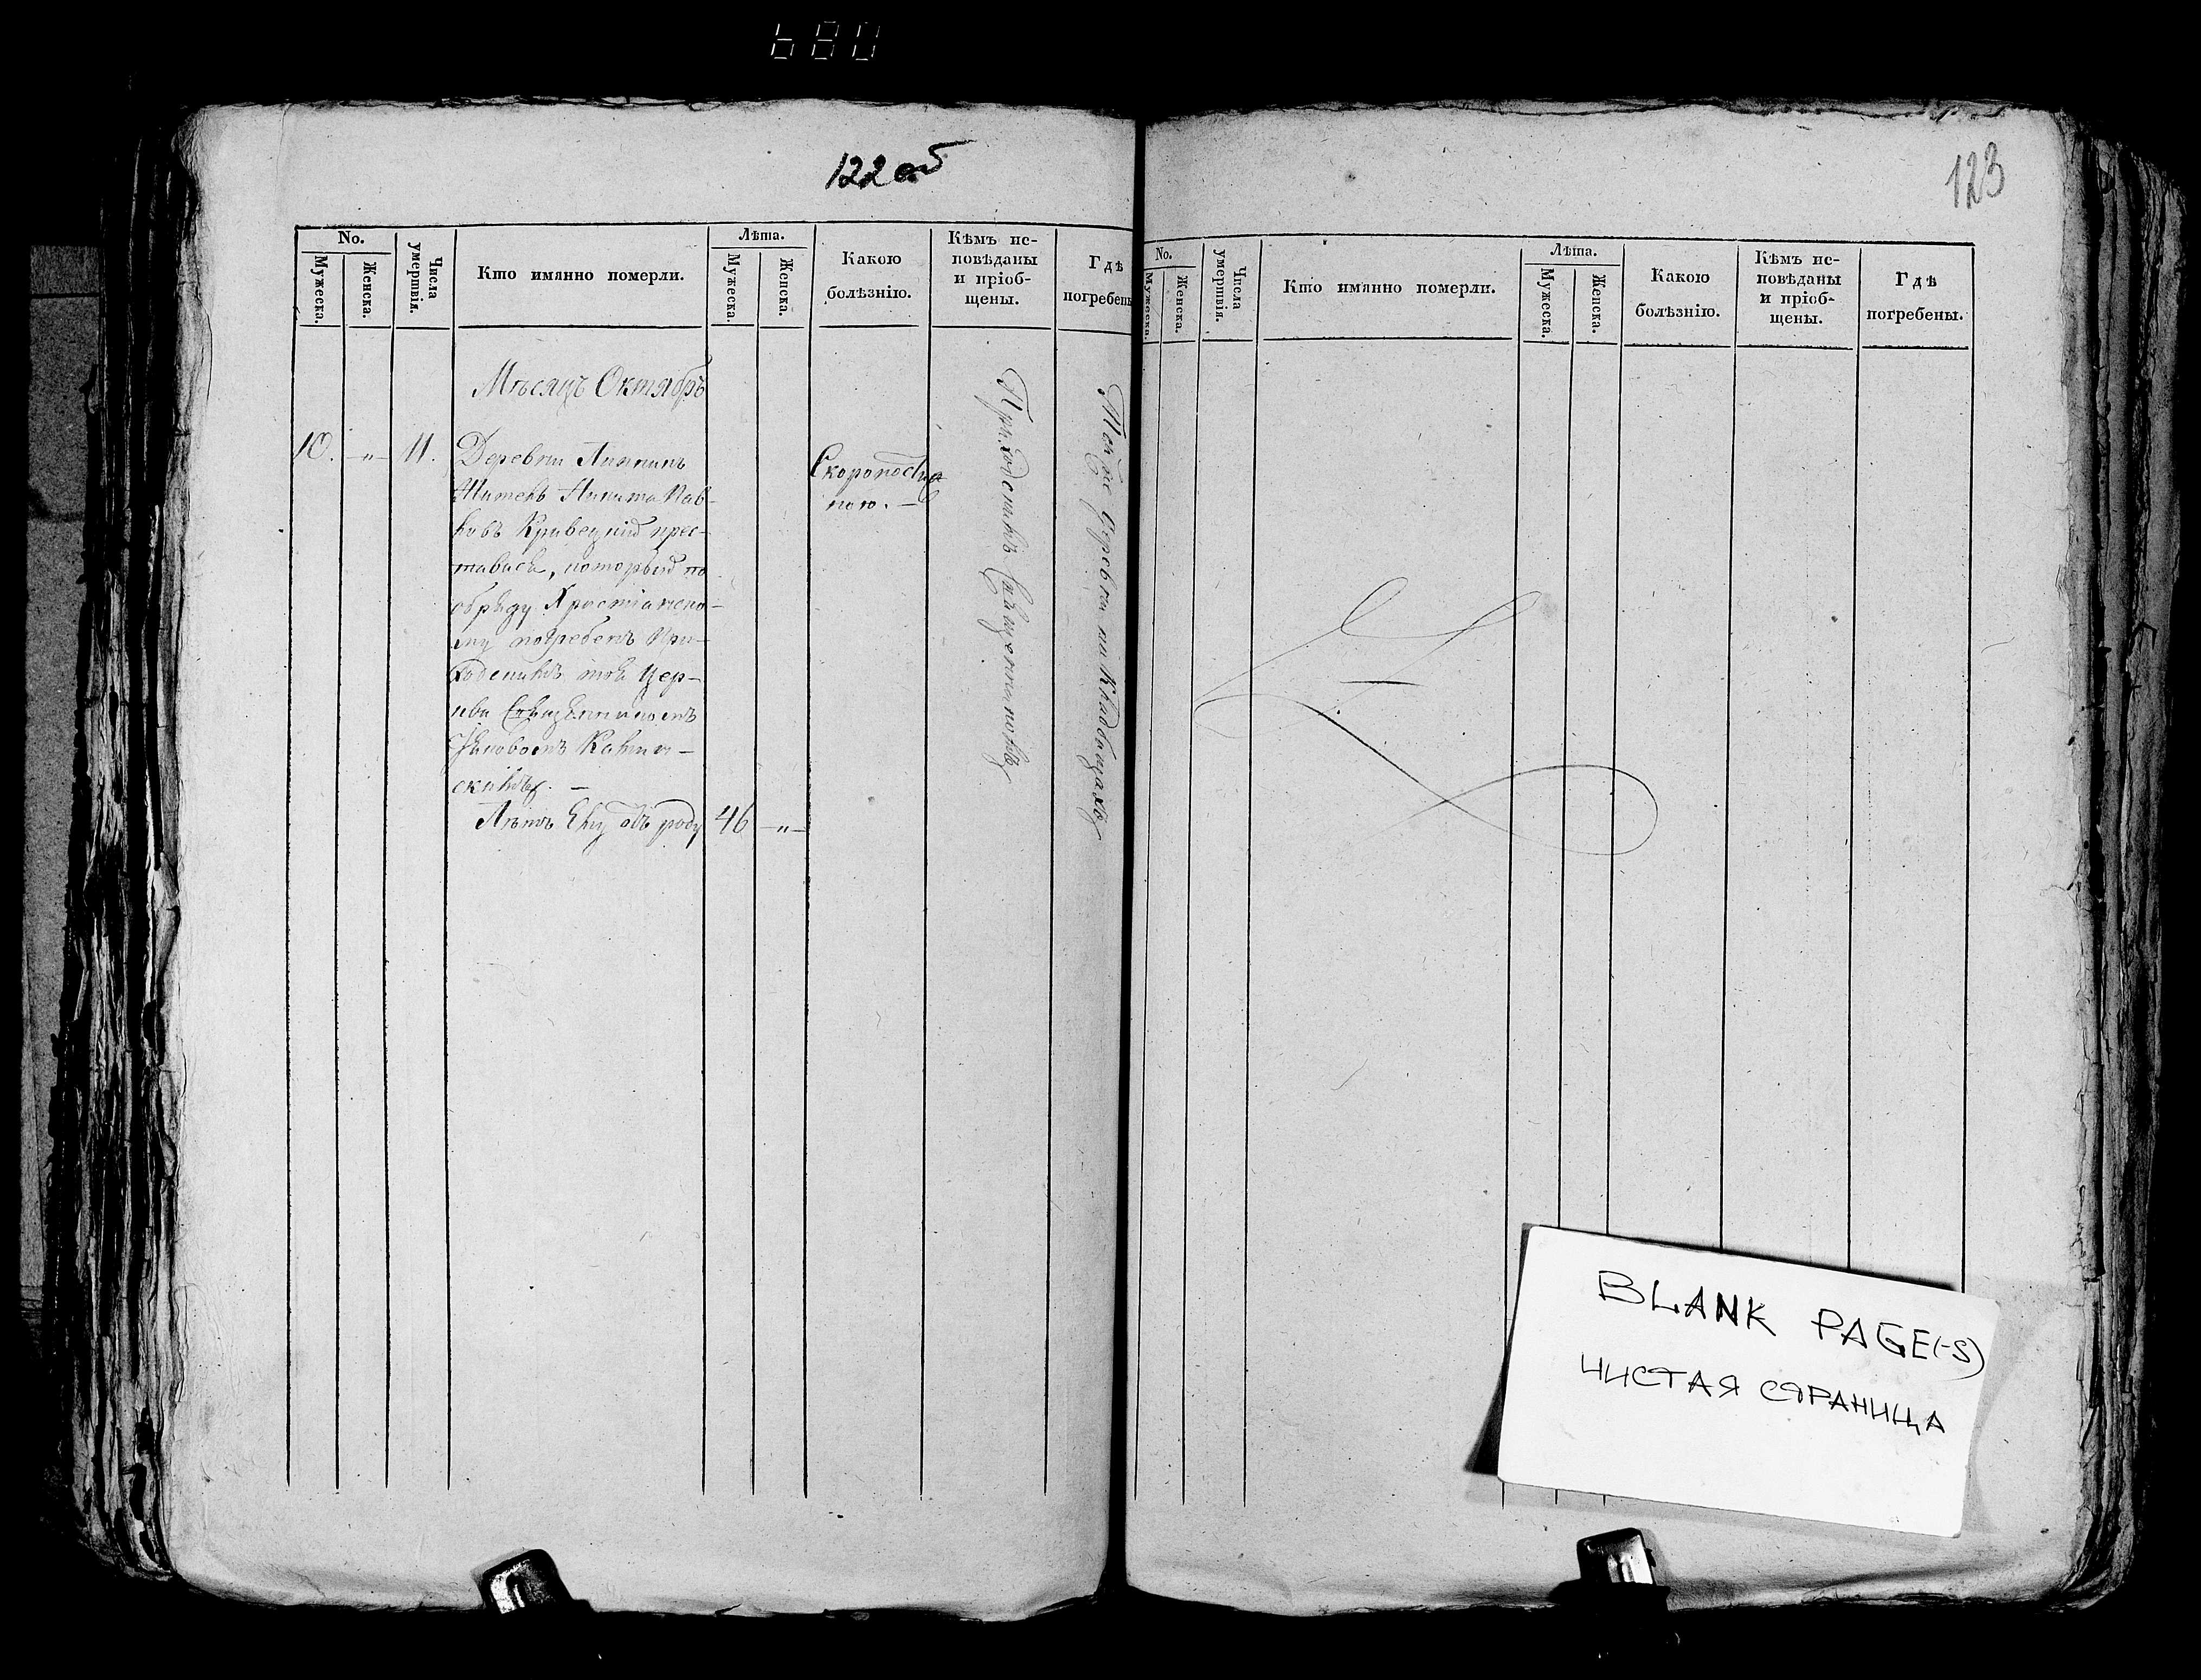 680
122 об
No.
Мужеска.
Женска.
Числа умертвія.
Кто имянно померли.
Лѣта.
Мужеска.
Женска.
Какою
болѣзнію.
Кѣмъ ис-
повѣданы
и пріоб-
щены.
Гдѣ
погребены
Мѣсяцъ Октябръ
10. -„- 11. Деревни
Житель Никита Пав-
ловъ Кривецкій прес-
тавися, который по
обряду Христіанско-
му погребенъ При-
ходскимъ тоя Цер-
кви Священникомъ
Яковомъ
скимъ. —
Лѣтъ Ему отъ роду 46 -„-
Скоропостиж
ною. —
Приходскимъ Священникомъ
Той же деревни на Кладбищахъ
123
No.
Мужеска.
Женска.
Числа умертвія.
Кто имянно померли.
Лѣта.
Мужеска.
Женска.
Какою
болѣзнію.
Кѣмъ ис-
повѣданы
и пріоб-
щены.
Гдѣ
погребены.
BLANK PAGE(-S)
ЧИСТАЯ СТРАНИЦА